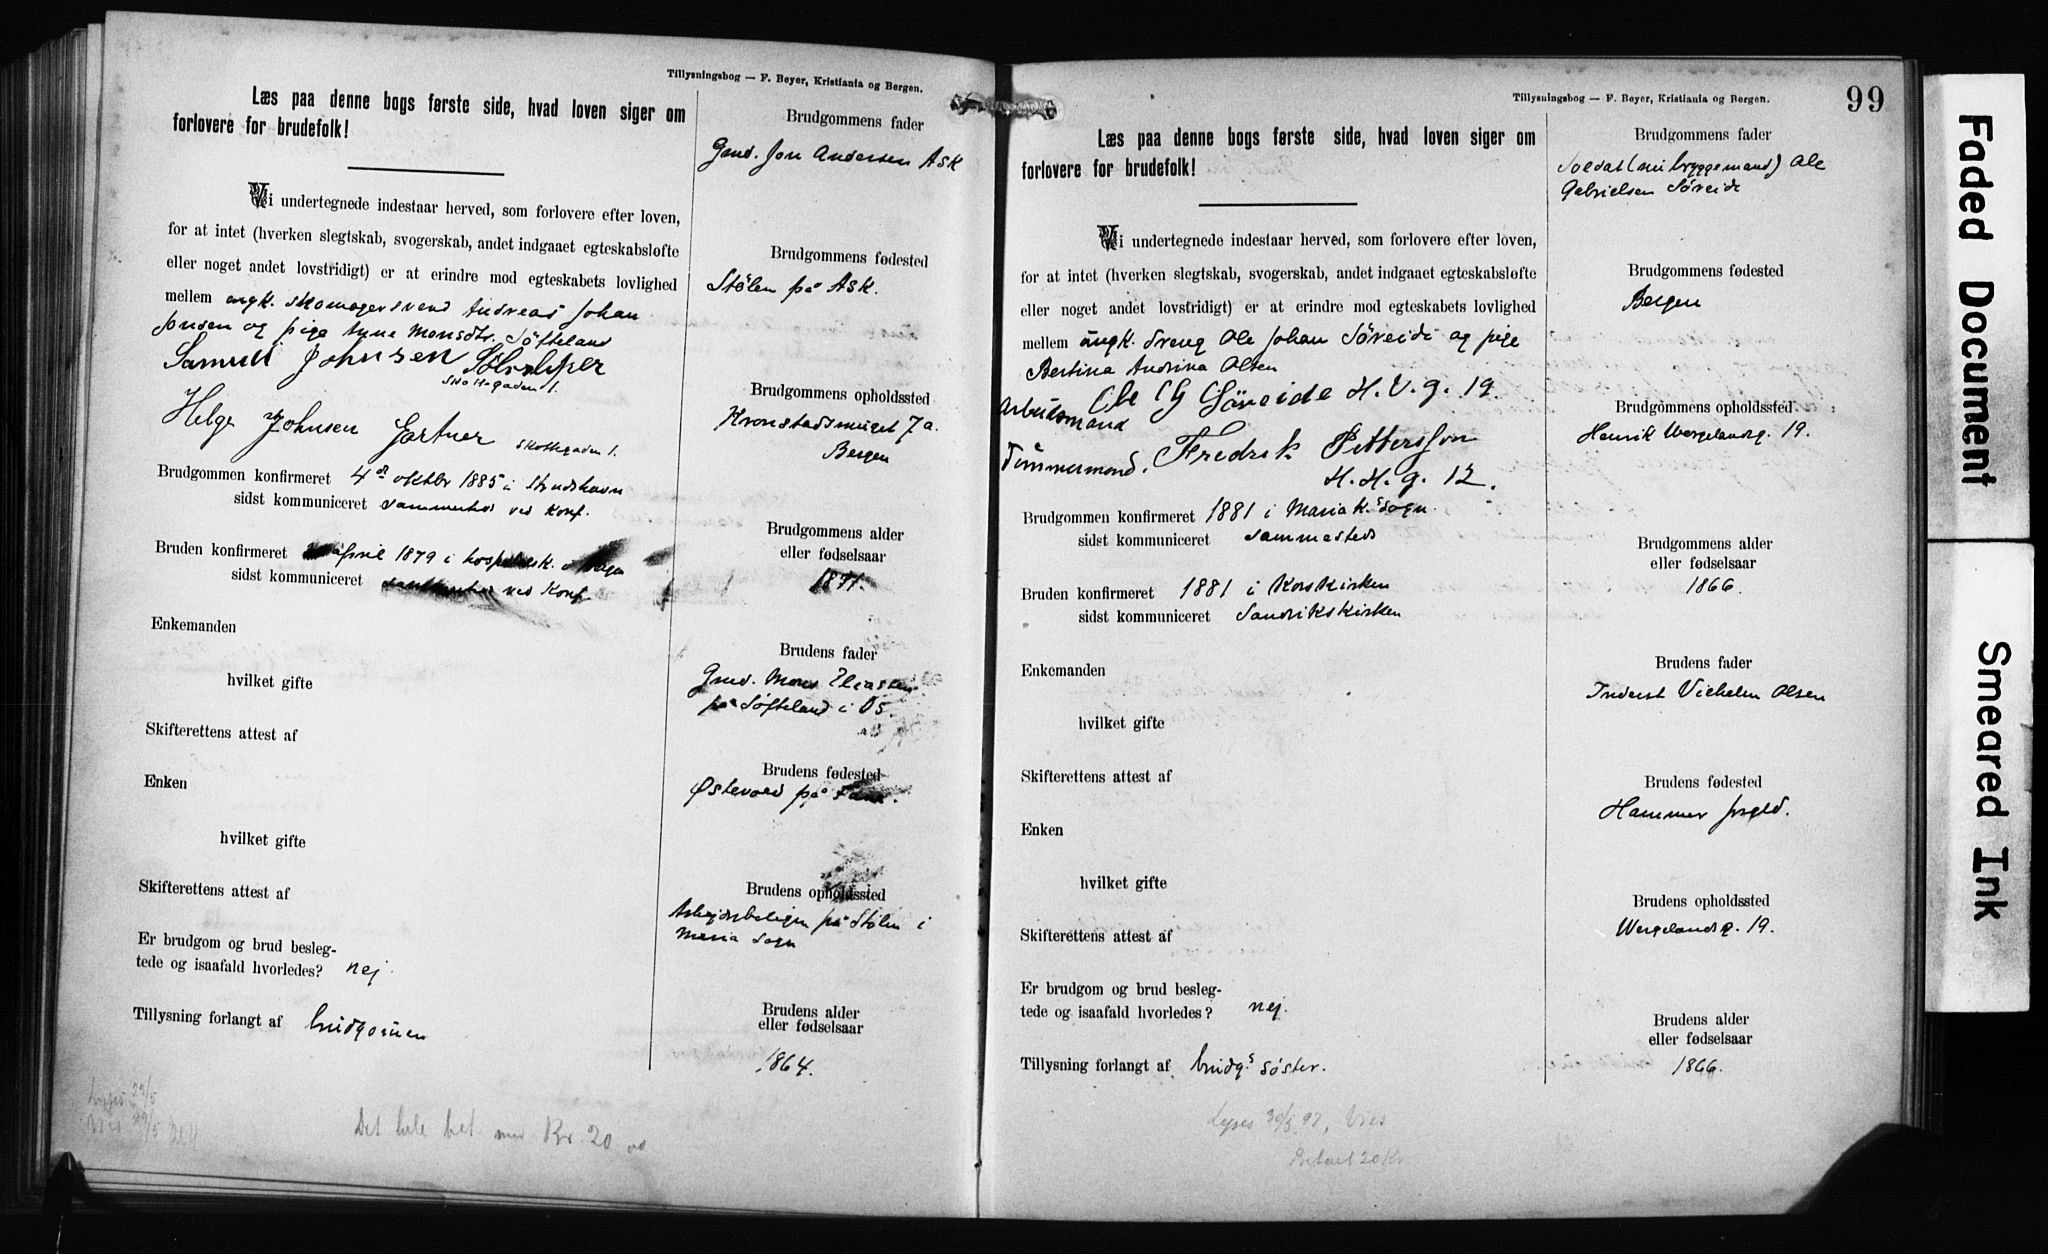 Tillysningsbog — F. Beyer, Kristiania og Bergen.
Læs paa denne bogs første side, hvad loven siger om
forlovere for brudefolk!
Vi undertegnede indestaar herved, som forlovere efter loven,
for at intet (hverken slegtskab, svogerskab, andet indgaaet egteskabsløfte
eller noget andet lovstridigt) er at erindre mod egteskabets lovlighed
mellem ungk. skomagersvend Andreas Johan
Jonsen og pige Anne Monsdtr. Søfteland
Samuel Johnsen
Skottegaden 1.
Helge Johnsen Gartner Skottegaden 1.
Brudgommen konfirmeret 4de oktbr 1885 i Strudshavn
sidst kommuniceret sammesteds ved Konf.
Bruden konfirmeret april 1879 i hospitalsk. i Bergen
sidst kommuniceret sammesteds ved Konf.
Enkemanden
hvilket gifte
Skifterettens attest af
Enken
hvilket gifte
Skifterettens attest af
Er brudgom og brud besleg-
tede og isaafald hvorledes? nej.
Tillysning forlangt af brudgommen
Lyses 23/5
Det hele bet. med Kr. 20 00
Brudgommens fader
Gmd. Jon Andersen Ask
Brudgommens fødested
Stølen på Ask.
Brudgommens opholdssted
Kronstadsmuget 7a.
Bergen
Brudgommens alder
eller fødselsaar
1871.
Brudens fader
Gmd. Mons Eliassen
på Søfteland i Os.
Brudens fødested
Østevold på
Brudens opholdssted
Arbejdsboligen på Stølen i
Maria Sogn
Brudens alder
eller fødselsaar
1864.
Tillysningsbog — F. Beyer, Kristiania og Bergen.
99
Læs paa denne bogs første side, hvad loven siger om
forlovere for brudefolk!
Vi undertegnede indestaar herved, som forlovere efter loven,
for at intet (hverken slegtskab, svogerskab, andet indgaaet egteskabsløfte
eller noget andet lovstridigt) er at erindre mod egteskabets lovlighed
mellem ungk. dreng Ole Johan Søreide og pige
Bertina Andrina Olsen
Arbeidsmand Ole G Søreide H. V. g. 19.
Tømmermand. Fredrik Pettersson
H. H. g. 12.
Brudgommen konfirmeret 1881 i Mariak.s sogn.
sidst kommuniceret sammesteds
Bruden konfirmeret 1881 i Korskirken
sidst kommuniceret Sandvikskirken
Enkemanden
hvilket gifte
Skifterettens attest af
Enken
hvilket gifte
Skifterettens attest af
Er brudgom og brud besleg-
tede og isaafald hvorledes? nej.
Tillysning forlangt af brudg.s søster.
Lyses 30/5 97, Vies
Betalt 20 Kr.
Brudgommens fader
Soldat (nu bryggemand) Ole
Gabrielsen Søreide
Brudgommens fødested
Bergen
Brudgommens opholdssted.
Henrik Wergelandsg. 19.
Brudgommens alder
eller fødselsaar
1866.
Brudens fader
Inderst Vilhelm Olsen
Brudens fødested
Hammer prgld.
Brudens opholdssted
Wergelandsg. 19.
Brudens alder
eller fødselsaar
1866.
Faded Document
Smeared Ink